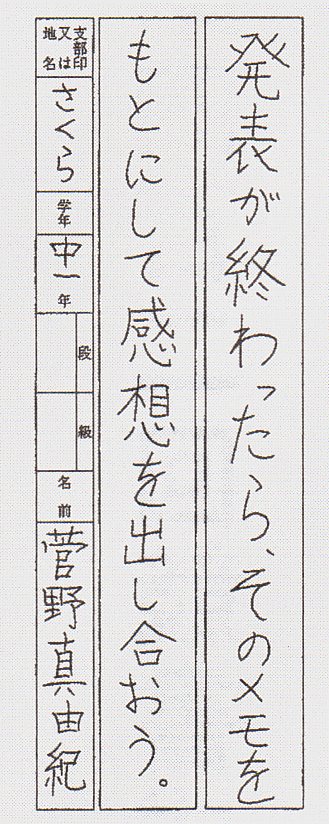 発表が終わったら、そのメモを
もとにして感想を出し合おう。
支部印又は地名 さくら 学年 中一年 段 級 名前 菅野真由紀